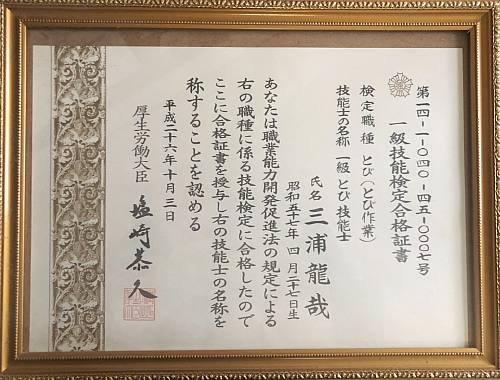 第一四-一-〇四〇-四五-〇〇〇七号
一級技能検定合格証書
検定職種 とび(とび作業)
技能士の名称 一級とび技能士
氏名 三浦龍哉
昭和五十七年 四月二十七日生
あなたは職業能力開発促進法の規定による
右の職種に係る技能検定に合格したので
ここに合格証書を授与し右の技能士の名称を
称することを認める
平成二十六年十月三日
厚生労働大臣 塩崎恭久